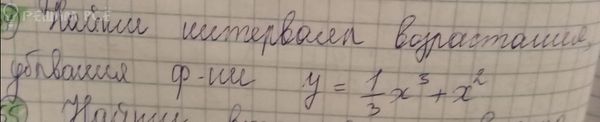 Найти интервалы возрастания,
убывания ф-ии y = 1/3 x³ + x²
Найти